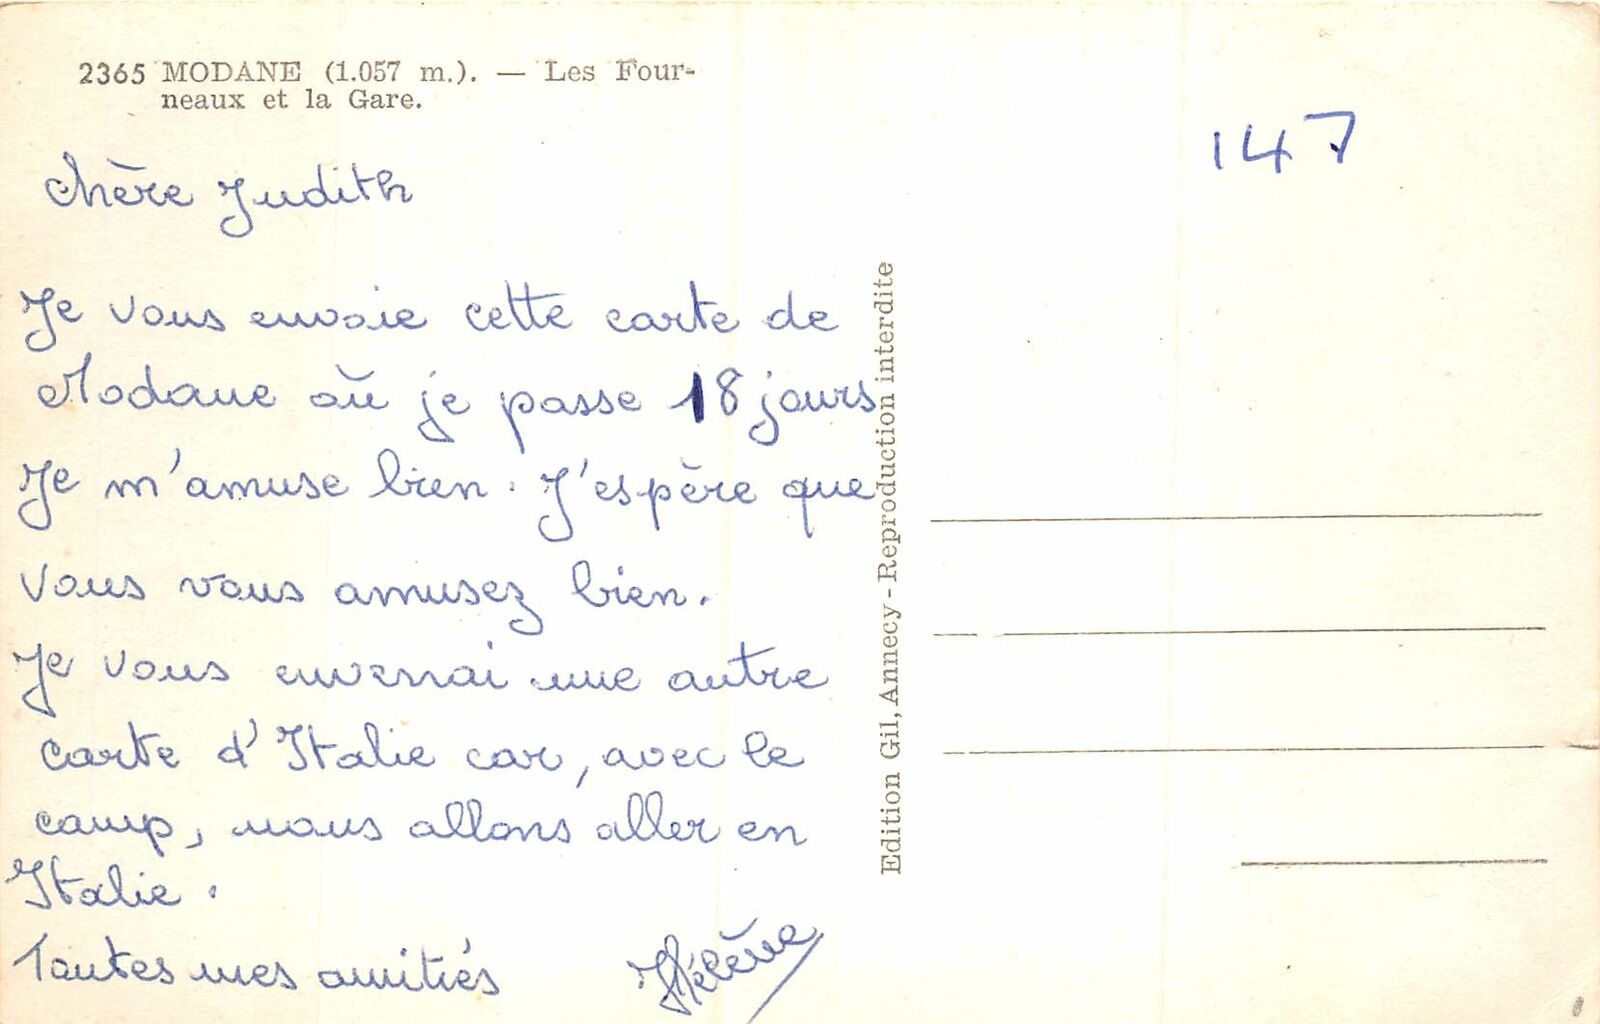 2365 MODANE (1.057 m.). — Les Four-
neaux et la Gare.
147
Chère Judith
Je vous envoie cette carte de
Modane où je passe 18 jours
Je m'amuse bien. J'espère que
vous vous amusez bien.
Je vous enverrai une autre
carte d'Italie car, avec le
camp, nous allons aller en
Italie.
Toutes mes amitiés
Hélène
Edition Gil, Annecy - Reproduction interdite